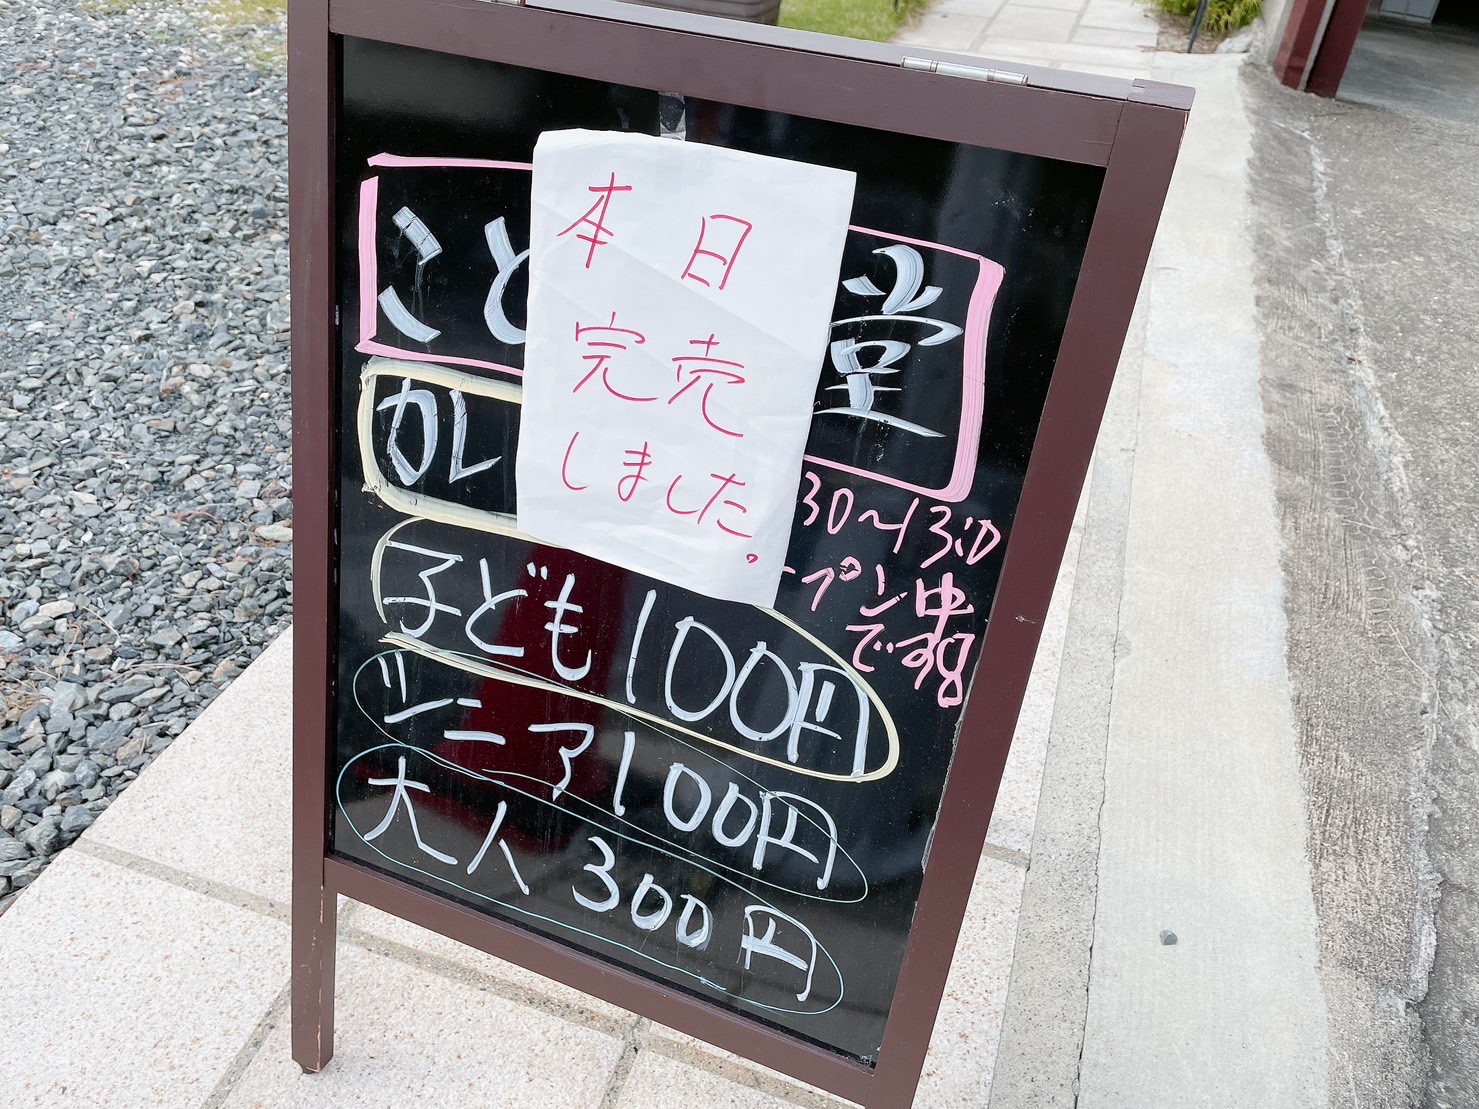 本日
完売
しました。
こど 堂
カレ
30〜13:0
ープン中
です
子ども100円
シニア100円
大人300円